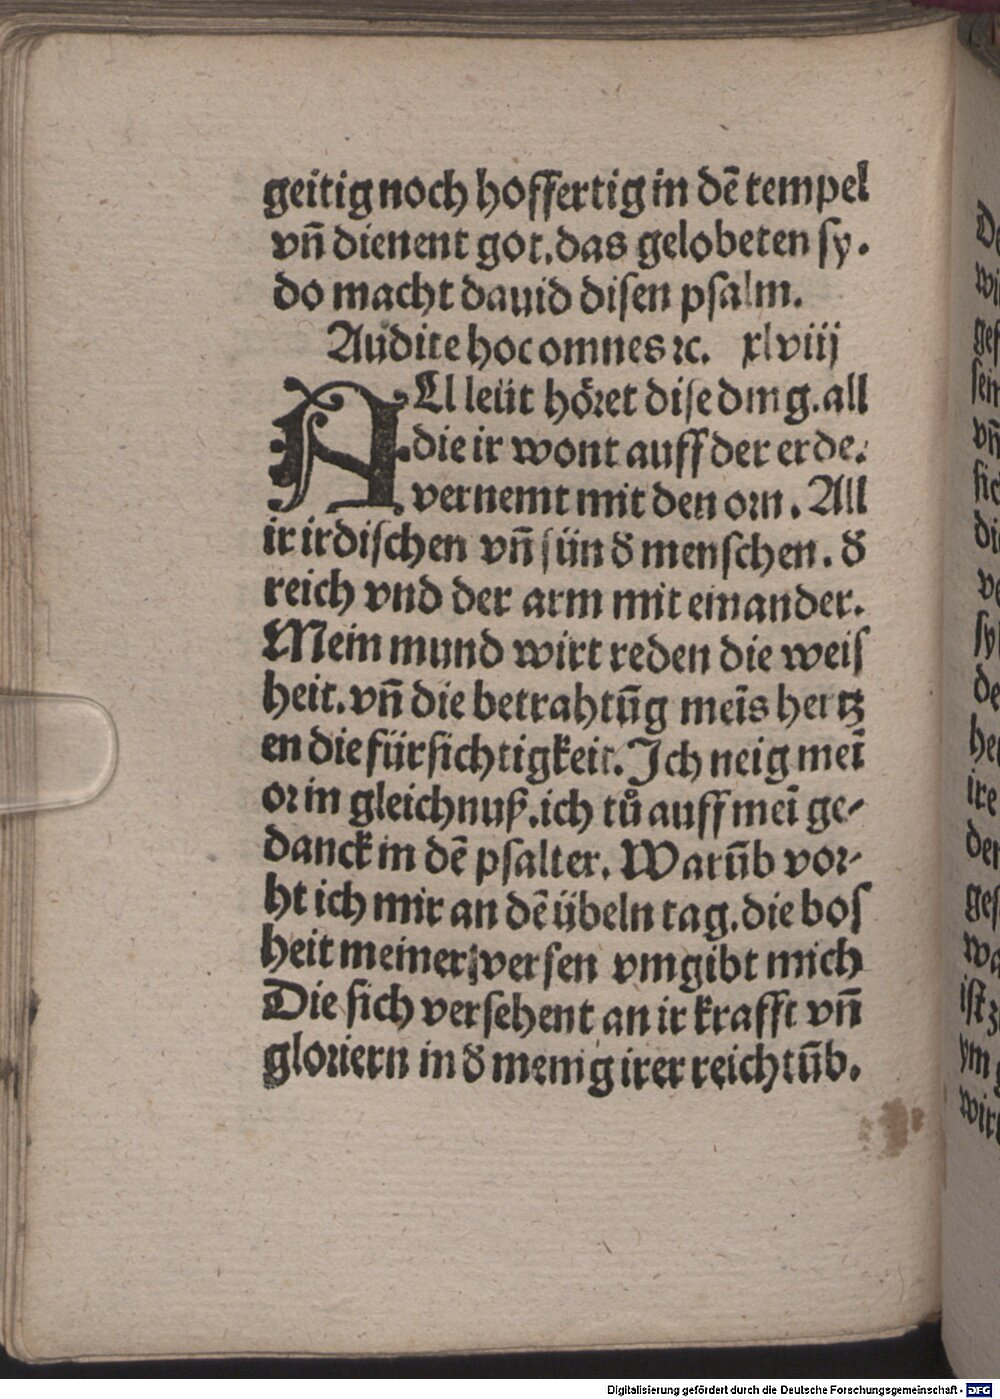 geitig noch hoffertig in dē tempel
vn̄ dienent got. das gelobeten sy.
do macht dauid disen psalm.
Audite hoc omnes ꝛc. xlviij
ALl leüt höꝛet dise ding. all
die ir wont auff der erde.
vernemt mit den oꝛn. All
ir irdischen vn̄ sün δ menschen. δ
reich vnd der arm mit einander.
Mein mund wirt reden die weiſ
heit. vn̄ die betrahtūg meīs hertz
en die fürsichtigkeit. Ich neig meī
oꝛ in gleichnuß. ich tů auff meī ge⸗
danck in dē psalter. Warūb voꝛ⸗
ht ich mir an dē übeln tag. die boſ
heit meiner versen vmgibt mich
Die sich versehent an ir krafft vn̄
gloꝛiern in δ menig irer reichtūb.
Digitalisierung gefördert durch die Deutsche Forschungsgemeinschaft - DFG